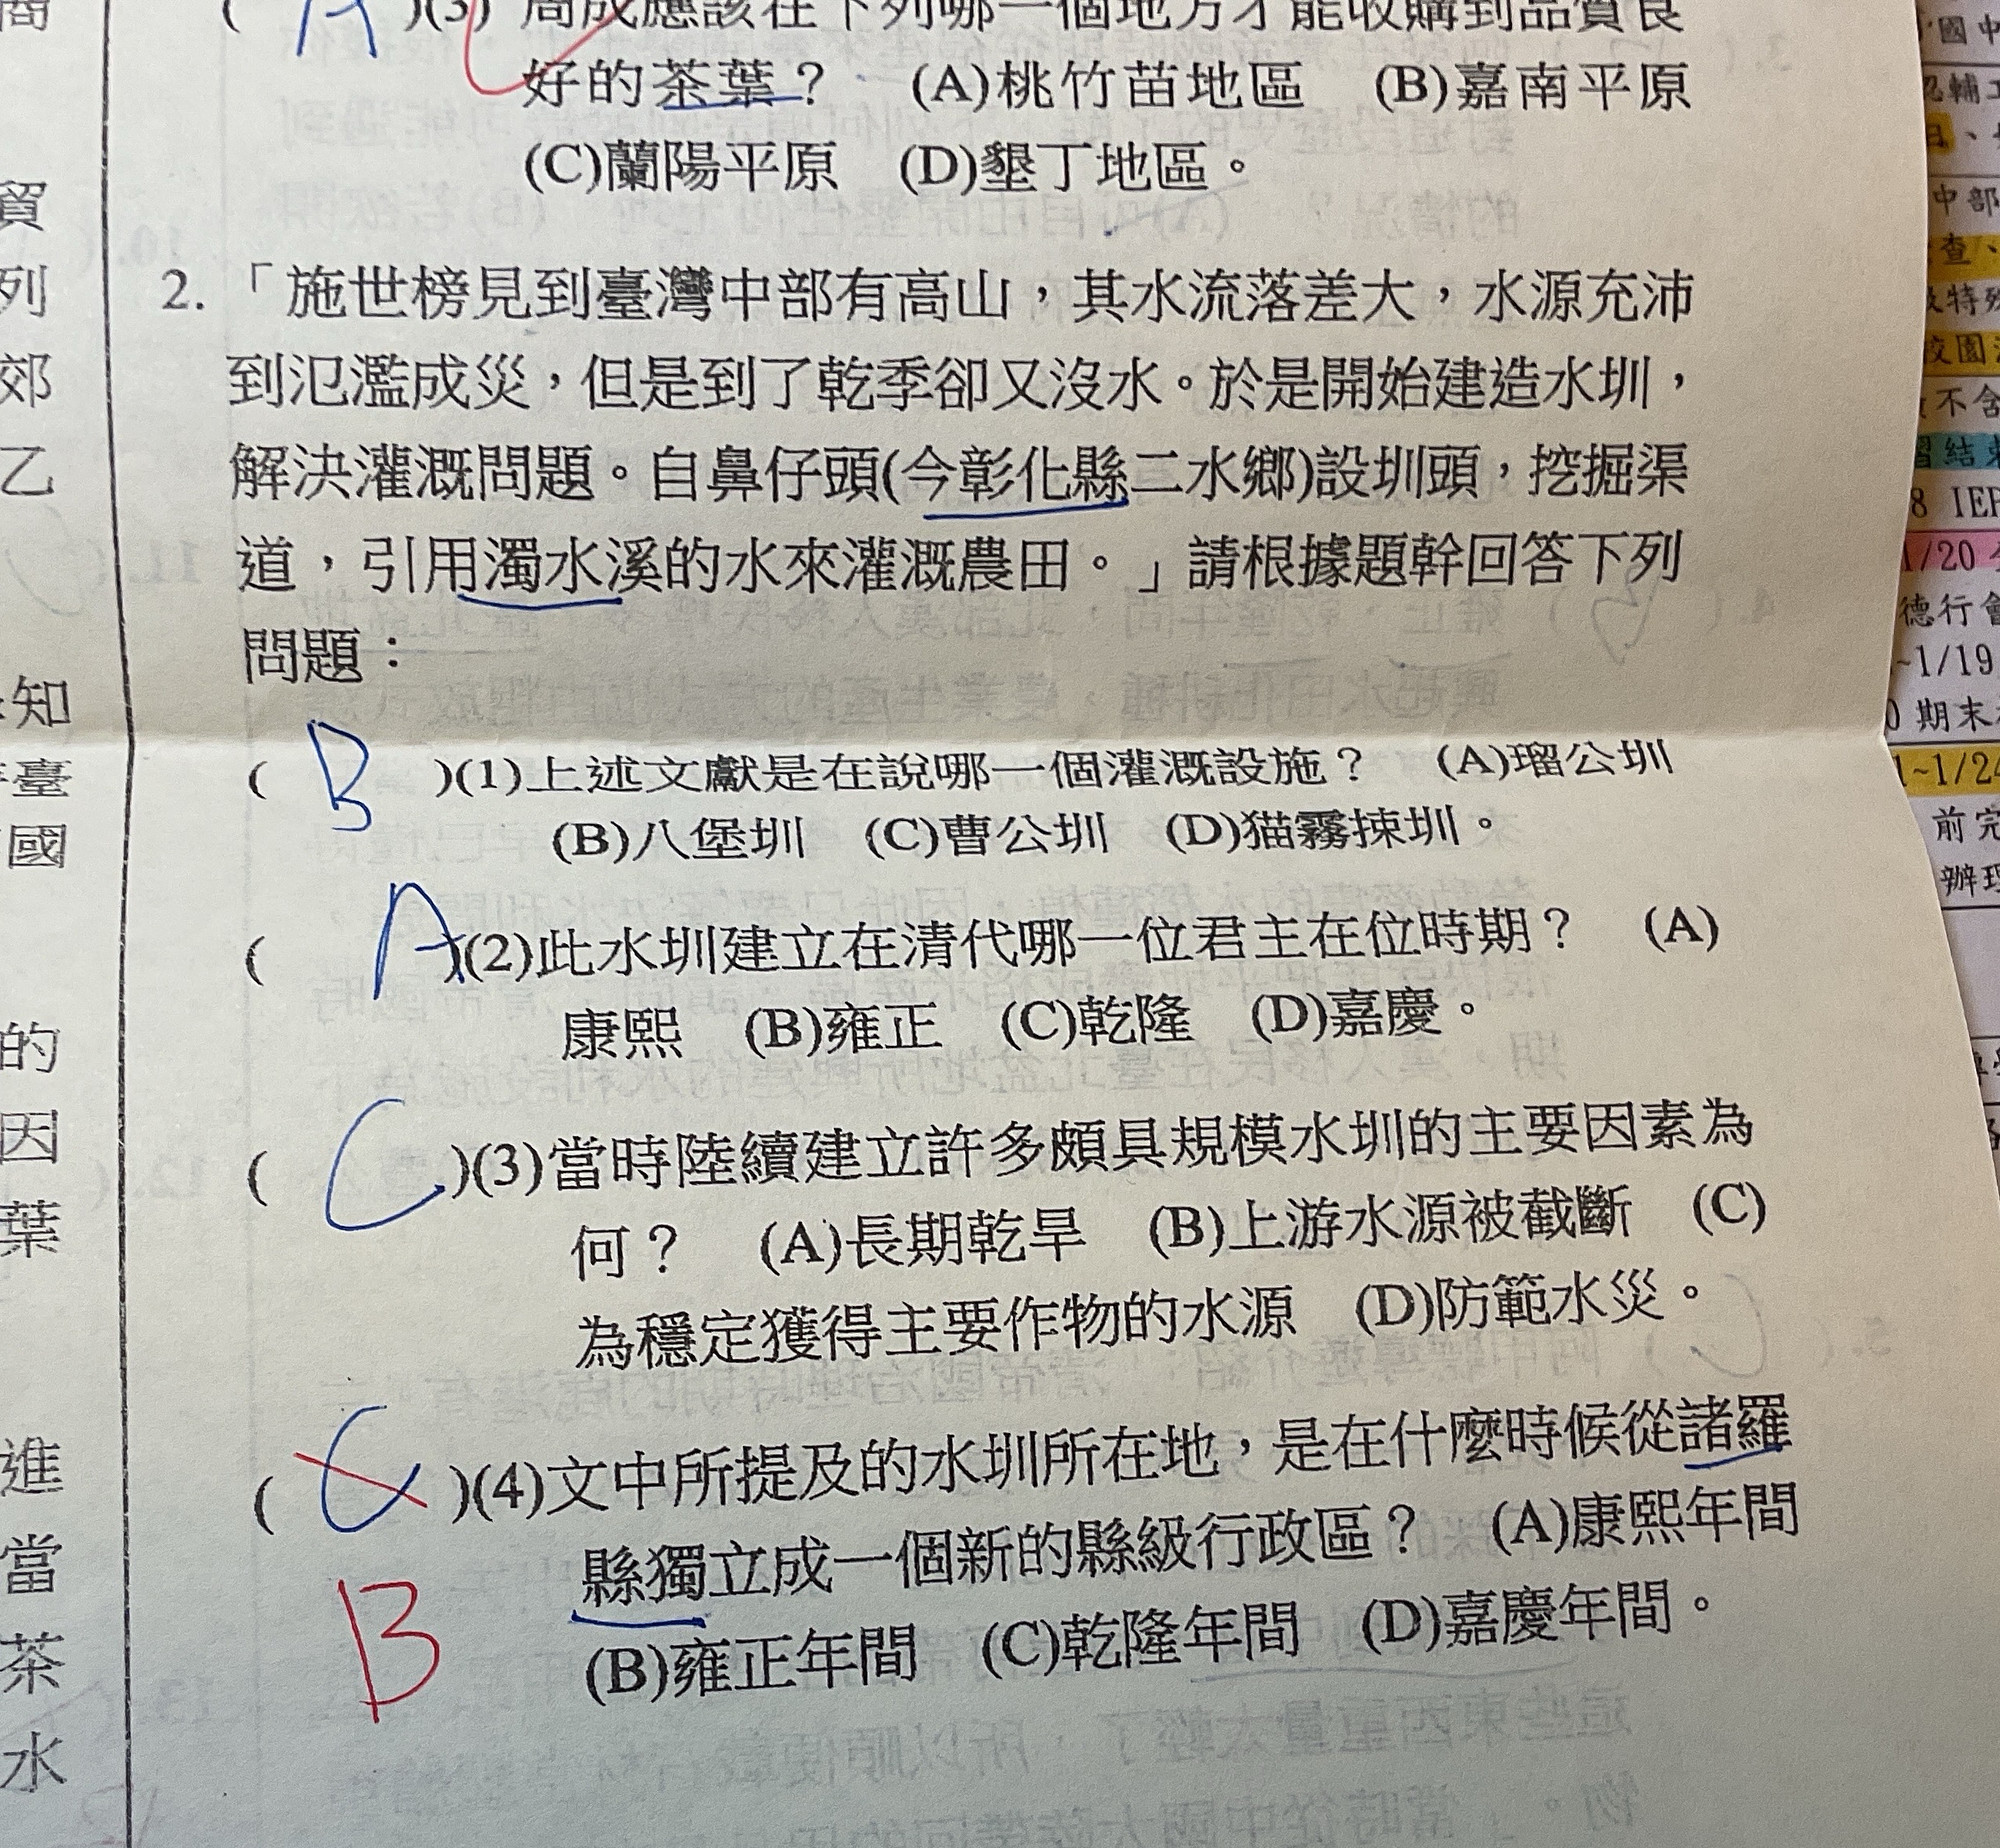 ( A )(3) 周成應該在下列哪一個地方才能收購到品質良
好的茶葉？ (A)桃竹苗地區 (B)嘉南平原
(C)蘭陽平原 (D)墾丁地區。
2.「施世榜見到臺灣中部有高山，其水流落差大，水源充沛
到氾濫成災，但是到了乾季卻又沒水。於是開始建造水圳，
解決灌溉問題。自鼻仔頭(今彰化縣二水鄉)設圳頭，挖掘渠
道，引用濁水溪的水來灌溉農田。」請根據題幹回答下列
問題：
( B )(1)上述文獻是在說哪一個灌溉設施？ (A)瑠公圳
(B)八堡圳 (C)曹公圳 (D)猫霧捒圳。
( A )(2)此水圳建立在清代哪一位君主在位時期？ (A)
康熙 (B)雍正 (C)乾隆 (D)嘉慶。
( C )(3)當時陸續建立許多頗具規模水圳的主要因素為
何？ (A)長期乾旱 (B)上游水源被截斷 (C)
為穩定獲得主要作物的水源 (D)防範水災。
( C )(4)文中所提及的水圳所在地，是在什麼時候從諸羅
縣獨立成一個新的縣級行政區？ (A)康熙年間
B
(B)雍正年間 (C)乾隆年間 (D)嘉慶年間。
貿
列
郊
乙
知
臺
國
的
因
葉
進
當
茶
水
國中
輔
中部
查、
特殊
校園
不含
結束
8 IEP
1/20
德行會
~1/19
期末
1~1/24
前完
辦理